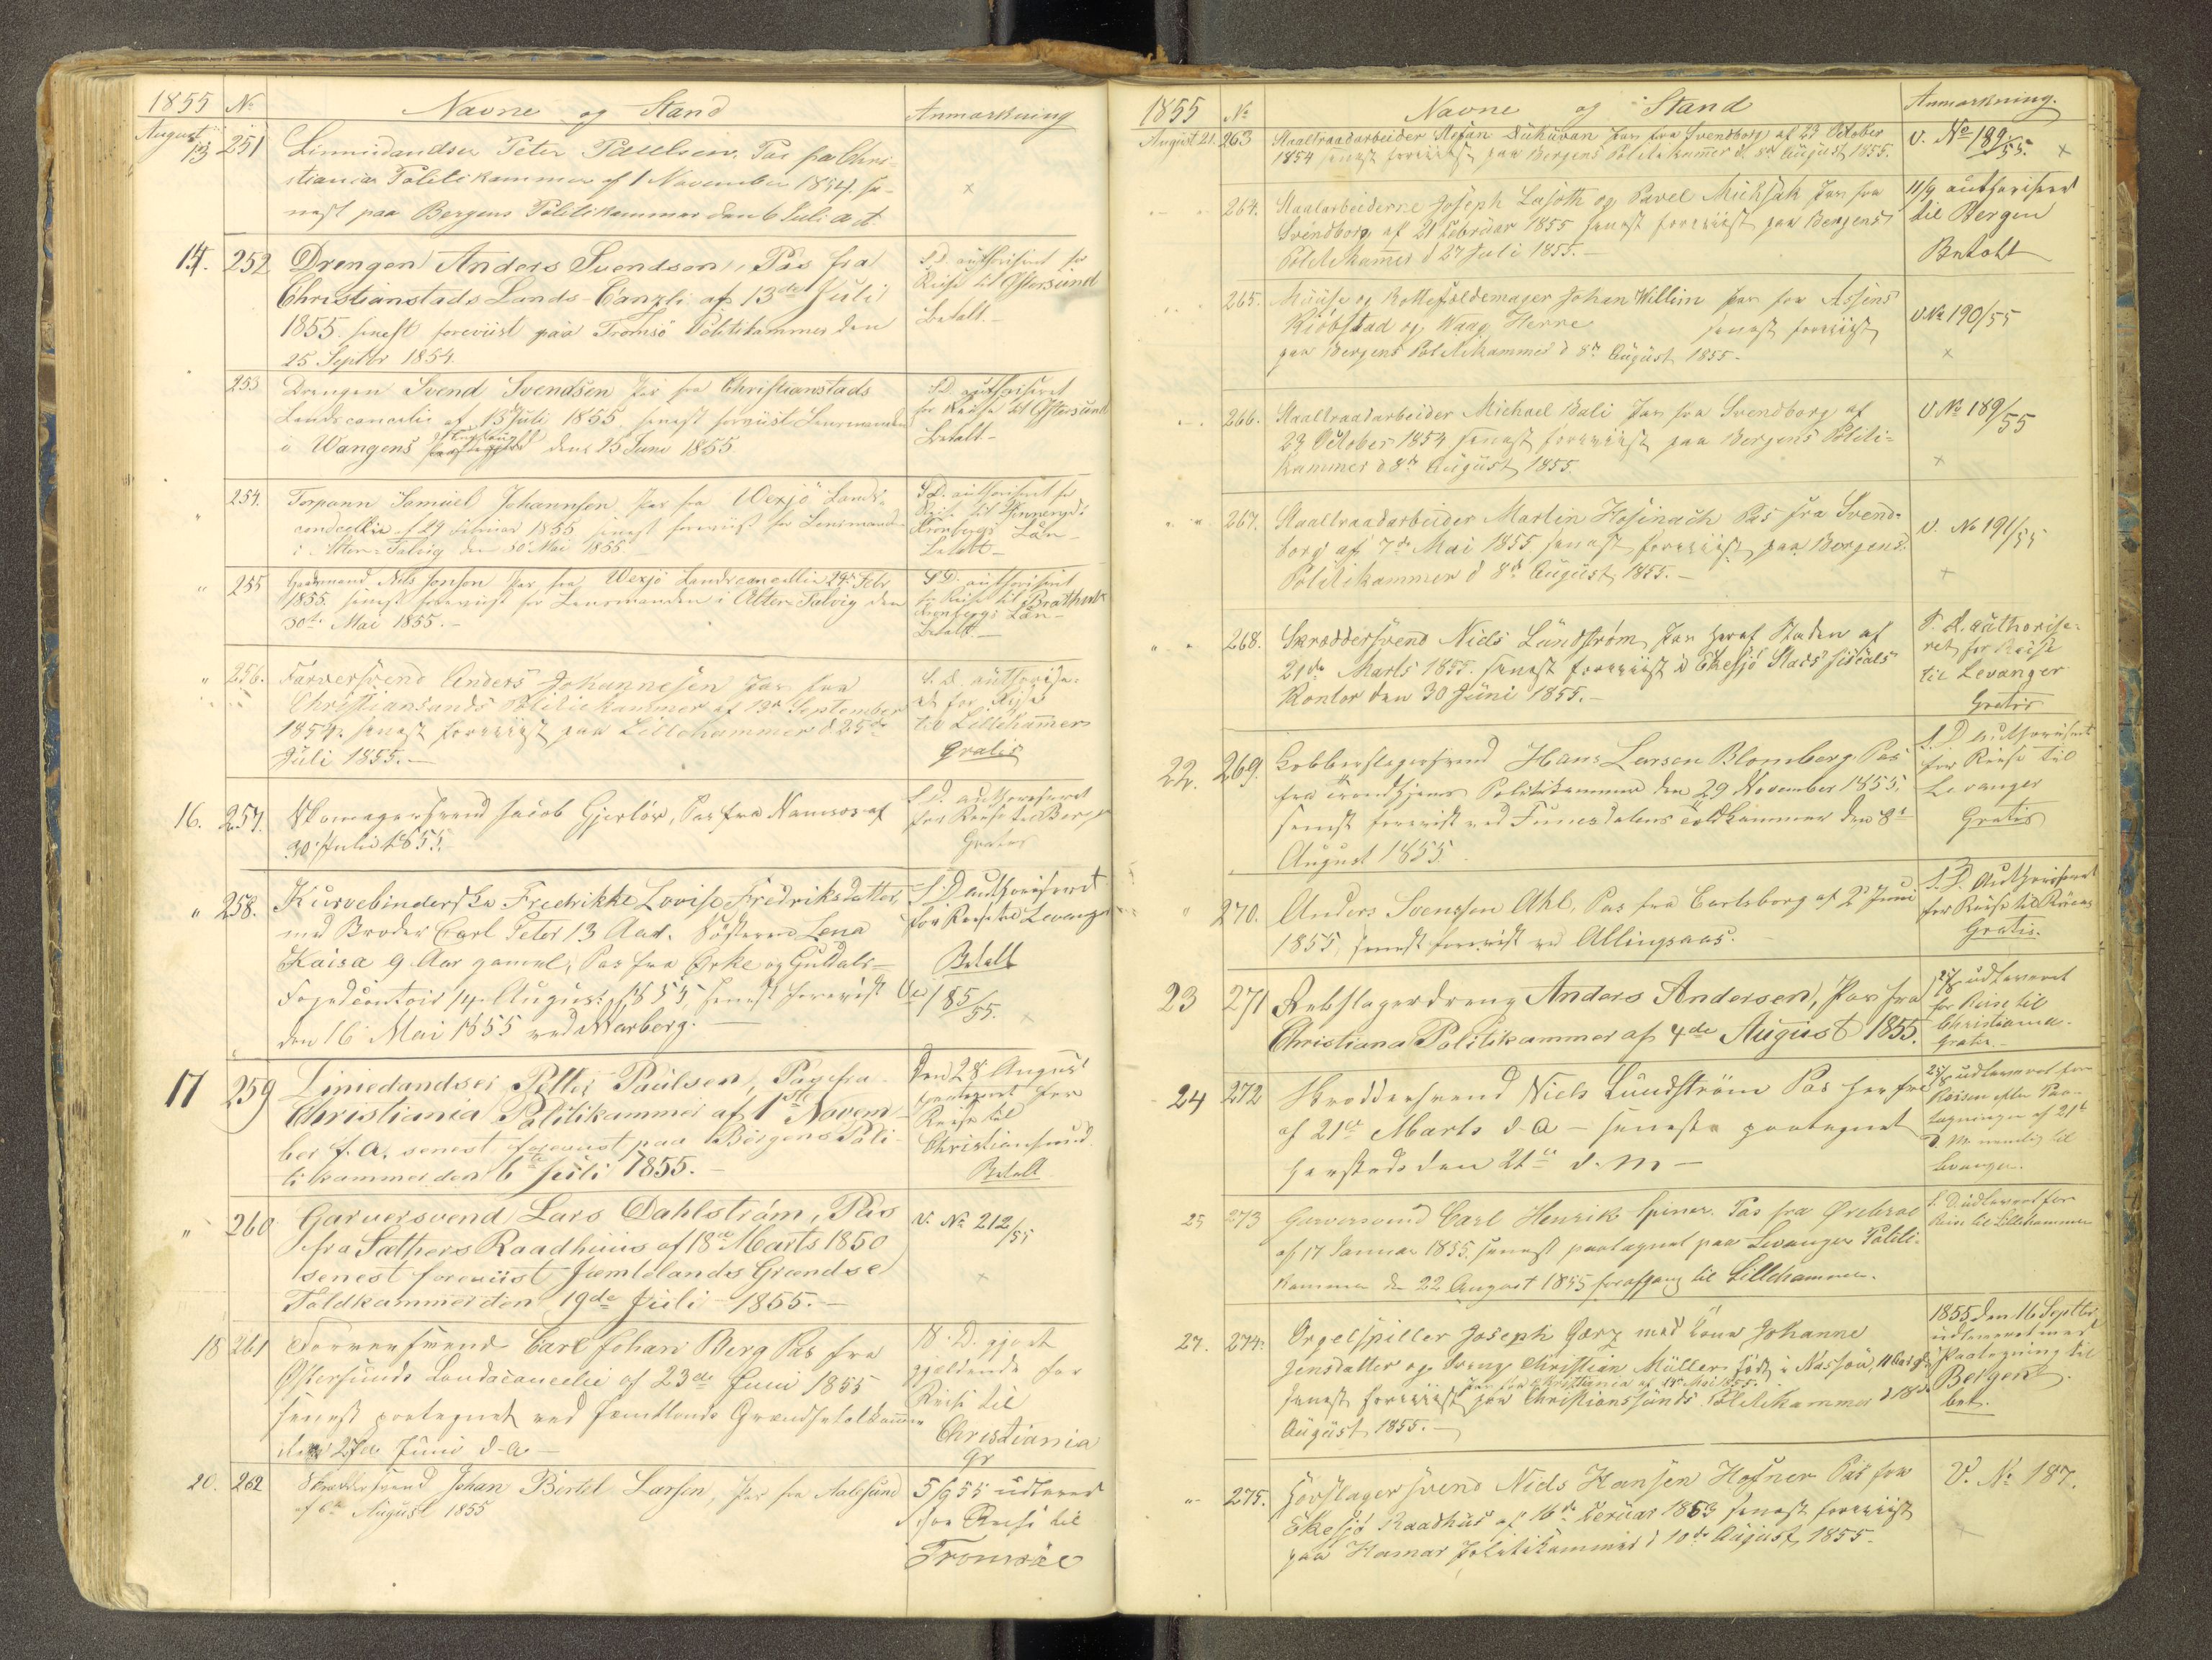 1855 No Navne og Stand Anmærkning
August 13 251 Liniedandser Peter Paulsen. Pas fra Chri-
stiania Politikammer af 1 November 1854. se-
nest paa Bergens Politikammer den 6 Juli a. d.
x
14. 252 Drengen Anders Svendsen, Pas fra
Christianstads Lands-Canzli af 13de Juli
1855. senest foreviist paa Tromsö Politikammer den
25 Septbr 1854.
S.D. authoriseret for
Reise til Østersund
Betalt.-
253. Drengen Svend Svendsen Pas fra Christianstads
Landscancelie af 13de Juli 1855. senest foreviist Lensmanden
i Wangens den 25 Juni 1855
S.D. authoriseret
for Reise til Østersund
Betalt-
" 254. Samuel Johannson Pas fra Wexjö Lands-
cancellie af 29 Februar 1855 senest foreviist for Lensmanden
i Alten-Talvig den 30 Mai 1855
S.D. authoriseret for
Reise til
Kronbergs Län-
Betalt-
" 255 Nils Jonson Pas fra Wexjö Landscancellie 29de Febr
1855. senest foreviist for Lensmanden i Alten-Talvig den
30te Mai 1855.-
S.D. authoriseret
for Reise til
Kronbergs Län-
Betalt.-
" 256. Farversvend Anders Johannesen Pas fra
Christiansands Politiekammer af 13de September
1854. senest foreviist paa Lillehammer d. 25de
Juli 1855.-
S. D. authorise-
ret for Reise
til Lillehammer
Gratis
16. 257. Skomagersvend Jacob Gjerlöw, Pas fra Namsos af
30 Juli 1855.
S.D. authoriseret
for Reise til Bergen
Gratis
" 258. Kurvebinderske Fredrikke Lovise Fredriksdatter,
med Broder Carl Peter 13 Aar. Søsteren Lena
Kaisa 9 Aar gamel, Pas fra Orke og Guldals-
Fogedcontoir 14 August 1855, senest foreviist
den 16 Mai 1855 ved Warberg.-
S.D. authoriseret
for Reise til Levanger
Betalt
V. 185/55. x
17 259 Liniedandser Petter Paulsen, Pas fra
Christiania Politikammer af 1ste Novem-
ber f. A. senest foreviist paa Bergens Poli-
tikammer den 6te Juli 1855.-
Den 28 August
paategnet for
Reise til
Christiansund.
Betalt
" 260 Garversvend Lars Dahlström, Pas
fra Sæthers Raadhuus af 18de Marts 1850
senest foreviist Jæmtelands Grændse
Toldkammer den 19de Juli 1855.-
V. No 212/55
x
18 261 Farversvend Carl Johan Berg Pas fra
Østersunds Landscancelie af 23de Juni 1855
senest paategnet ved Jæmtlands Grændsetoldkammer
den 27de Juni d. A-
S. D. gjort
gjeldende for
Reise til
Christiania
Gr
20. 262 Skræddersvend Johan Bertel Larsen, Pas fra Aalesund
af 6te August 1855
5/9 55 udleveret
for Reise til
Tromsöe
1855 No Navne og Stand Anmærkning.
August 21. 263 Staaltraadarbeider Stefan Pas fra Svendborg af 23 October
1854 senest foreviist paa Bergens Politikammer d. 8de August 1855.
V. No 189/55. x
" " 264. Staalarbeiderne Joseph Lasoth og Pavel Michsak Pas fra
Svendborg af 21 Februar 1855 senest foreviist paa Bergens
Politikamer d 27 Juli 1855.-
11/9 authoriseret
til Bergen
Betalt
" " 265. Muuse og Rottefældemager Johan Willim Pas fra Assens
Kiöbstad og Waag Herre senest foreviist
paa Bergens Politikammer d 8de August 1855-
V No 190/55
x
" " 266. Staaltraadarbeider Michael Bali Pas fra Svendborg af
23 October 1854 senest foreviist paa Bergens Politi-
kammer d 8de August 1855.
V No 189/55
x
" " 267. Staaltraadarbeider Martin Hosinach Pas fra Svend-
borg af 7de Mai 1855 senest foreviist paa Bergens
Politikammer d 8de August 1855.-
V. No 191/55
x
" " 268. Skræddersvend Niels Lundström Pas heraf Staden af
21de Marts 1855. senest foreviist i Ekesjö Stads fiscals
Kontor den 30 Juni 1855.-
S. D. authorise-
ret for Reise
til Levanger
Gratis
22. 269. Kobberslagersvend Hans Larsen Blomberg Pas
fra Trondhjems Politikammer den 29 November 1855,
senest foreviist ved Funesdalens Toldkammer den 8de
August 1855.
S. D. authoriseret
for Reise til
Levanger
Gratis
" 270. Anders Svensson Ahl, Pas fra Carlsborg af 2de Juni
1855, senest foreviist ved Allingsaas.-
S. D. authoriseret
for Reise til Röraas
Gratis.
23 271 Rebslagerdreng Anders Andersen, Pas fra
Christiana Politikammer af 4de August 1855.
28/8 udleveret
for Reise til
Christiania.
Gratis.-
24 272 Skræddersvend Niels Lundström Pas herfra
af 21de Marts d. A- seneste paategnet
herstads den 21de d. M-
25/8 udleveret for
Reisen efter Paa-
tegningen af 21de
d. M. nemlig til
Levanger.
25 273 Garversvend Carl Henrik Spiner. Pas fra Ørebroe
af 17 Januar 1855. senest paategnet paa Levanger Politi-
kammer den 22 August 1855 for afgang til Lillehammer.
S. D. udleveret for
Reise til Lillehammer
27. 274. Orgelspiller Joseph Görz med Kone Johanne
Jensdatter og Dreng Christian Müller född i Nassau, 11 Aar gl.
Pas fra Christiania af 12 Mai 1855.
senest foreviist paa Christianssunds Politikammer d 18de
August 1855.-
1855 den 16 Septbr
udleveret med
Paategning til
Bergen.
bet.
" 275. Hovslagersvend Niels Hansen Hofner Pas fra
Ekesjö Raadhus af 16de Feruar 1853 senest foreviist
paa Hamar Politikammer d 10de August 1855.-
V. No 187.
x